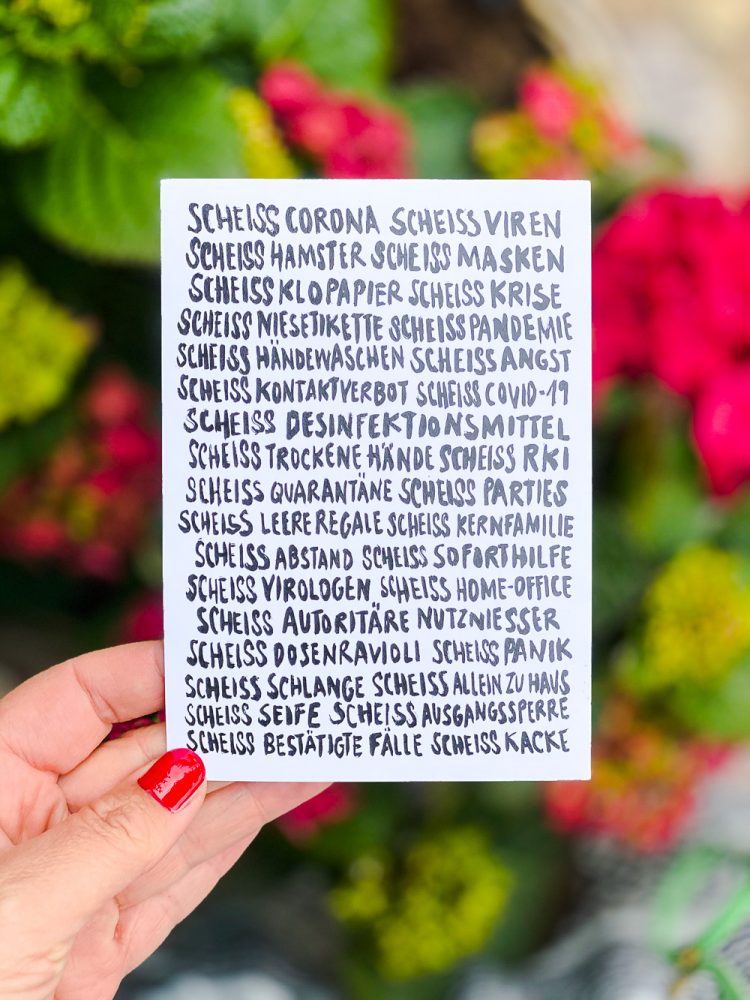 SCHEISS CORONA SCHEISS VIREN
SCHEISS HAMSTER SCHEISS MASKEN
SCHEISS KLOPAPIER SCHEISS KRISE
SCHEISS NIESETIKETTE SCHEISS PANDEMIE
SCHEISS HÄNDEWASCHEN SCHEISS ANGST
SCHEISS KONTAKTVERBOT SCHEISS COVID-19
SCHEISS DESINFEKTIONSMITTEL
SCHEISS TROCKENE HÄNDE SCHEISS RKI
SCHEISS QUARANTÄNE SCHEISS PARTIES
SCHEISS LEERE REGALE SCHEISS KERNFAMILIE
SCHEISS ABSTAND SCHEISS SOFORTHILFE
SCHEISS VIROLOGEN SCHEISS HOME-OFFICE
SCHEISS AUTORITÄRE NUTZNIESSER
SCHEISS DOSENRAVIOLI SCHEISS PANIK
SCHEISS SCHLANGE SCHEISS ALLEIN ZU HAUS
SCHEISS SEIFE SCHEISS AUSGANGSSPERRE
SCHEISS BESTÄTIGTE FÄLLE SCHEISS KACKE